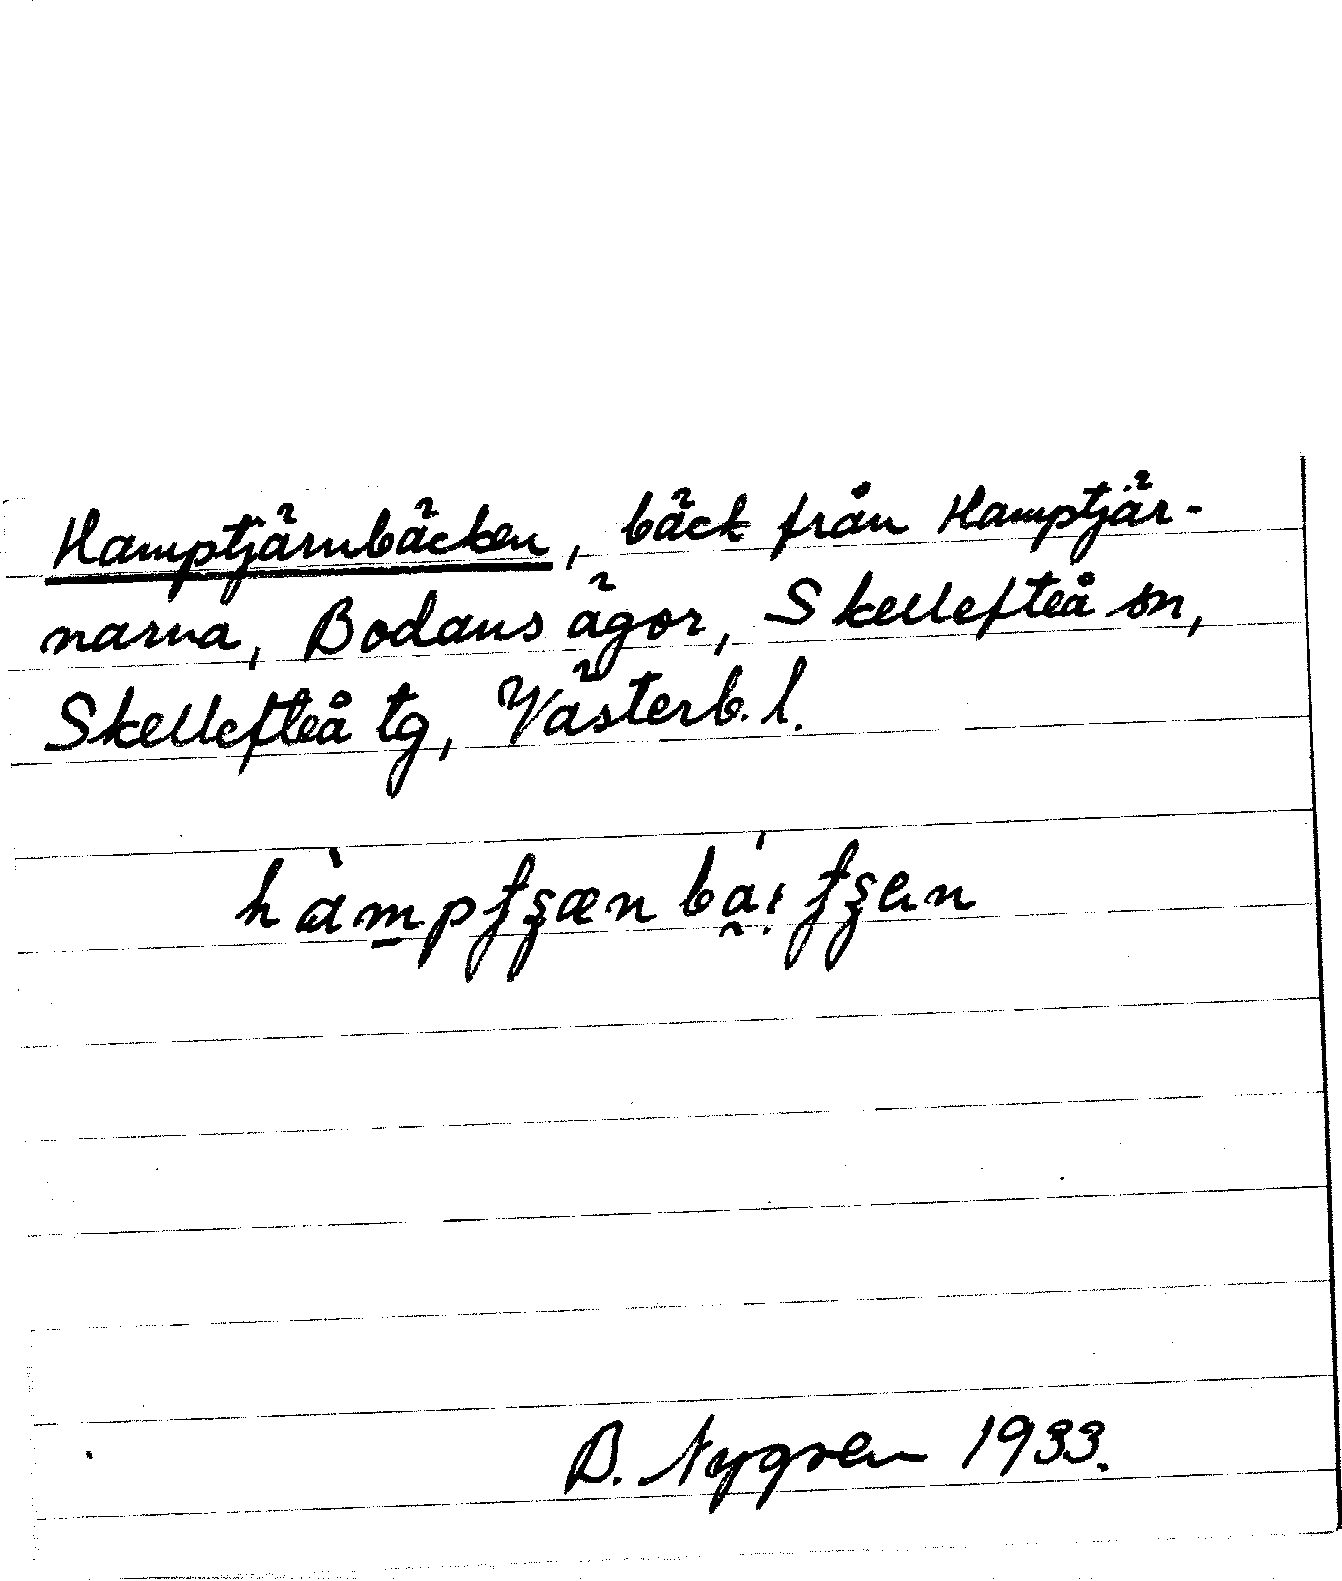 Hamptjärnbäcken, bäck från Hamptjär-
narna, Bodans ägor, Skellefteå sn,
Skellefteå tg, Västerb. l.
B. Nygren 1933.